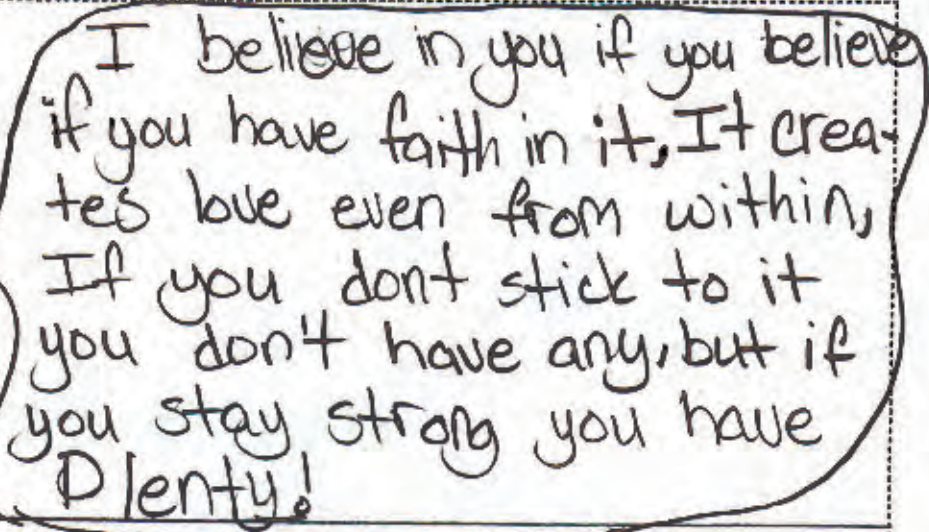 I believe in you if you believe
if you have faith in it, It crea-
tes love even from within,
If you dont stick to it
you don't have any, but if
you stay strong you have
Plenty!